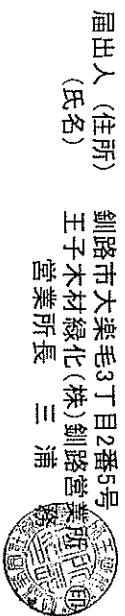 届出人（住所） 釧路市大楽毛3丁目2番5号
（氏名） 王子木材緑化(株)釧路営業所
営業所長 三浦